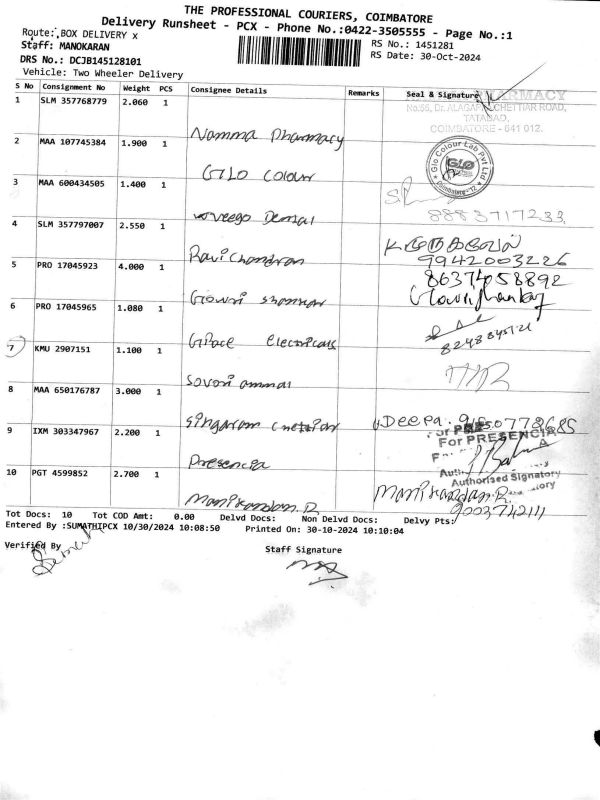 THE PROFESSIONAL COURIERS, COIMBATORE
Delivery Runsheet - PCX - Phone No.:0422-3505555 - Page No.:1
Route: BOX DELIVERY x
RS No.: 1451281
Staff: MANOKARAN
RS Date: 30-Oct-2024
DRS No.: DCJB145128101
Vehicle: Two Wheeler Delivery
S No Consignment No Weight PCS Consignee Details Remarks Seal & Signature
1 SLM 357768779 2.060 1 Namma Pharmacy
No.56, Dr. ALAGAPPA CHETTIAR ROAD,
TATABAD,
COIMBATORE - 641 012.
2 MAA 107745384 1.900 1 GLO Colour
Glo Colour Lab Pvt Ltd
Glo
Coimbatore - 12
3 MAA 600434505 1.400 1 Dental
8883717233
4 SLM 357797007 2.550 1 Ravichandran
9942003226
5 PRO 17045923 4.000 1 Gowri Shankar
8637458892
Gowrishankar
6 PRO 17045965 1.080 1 Grace Electricals
7 KMU 2907151 1.100 1 ammal
8 MAA 650176787 3.000 1 Singaram Chettiar
Deepa
9 IXM 303347967 2.200 1 Presencia
For PRESENCIA
Authorised Signatory
10 PGT 4599852 2.700 1 Manikandan.R
Manikandan.R
9003742111
Tot Docs: 10 Tot COD Amt: 0.00 Delvd Docs: Non Delvd Docs: Delvy Pts:
Entered By :SUMATHIPCX 10/30/2024 10:08:50 Printed On: 30-10-2024 10:10:04
Verified By
Staff Signature